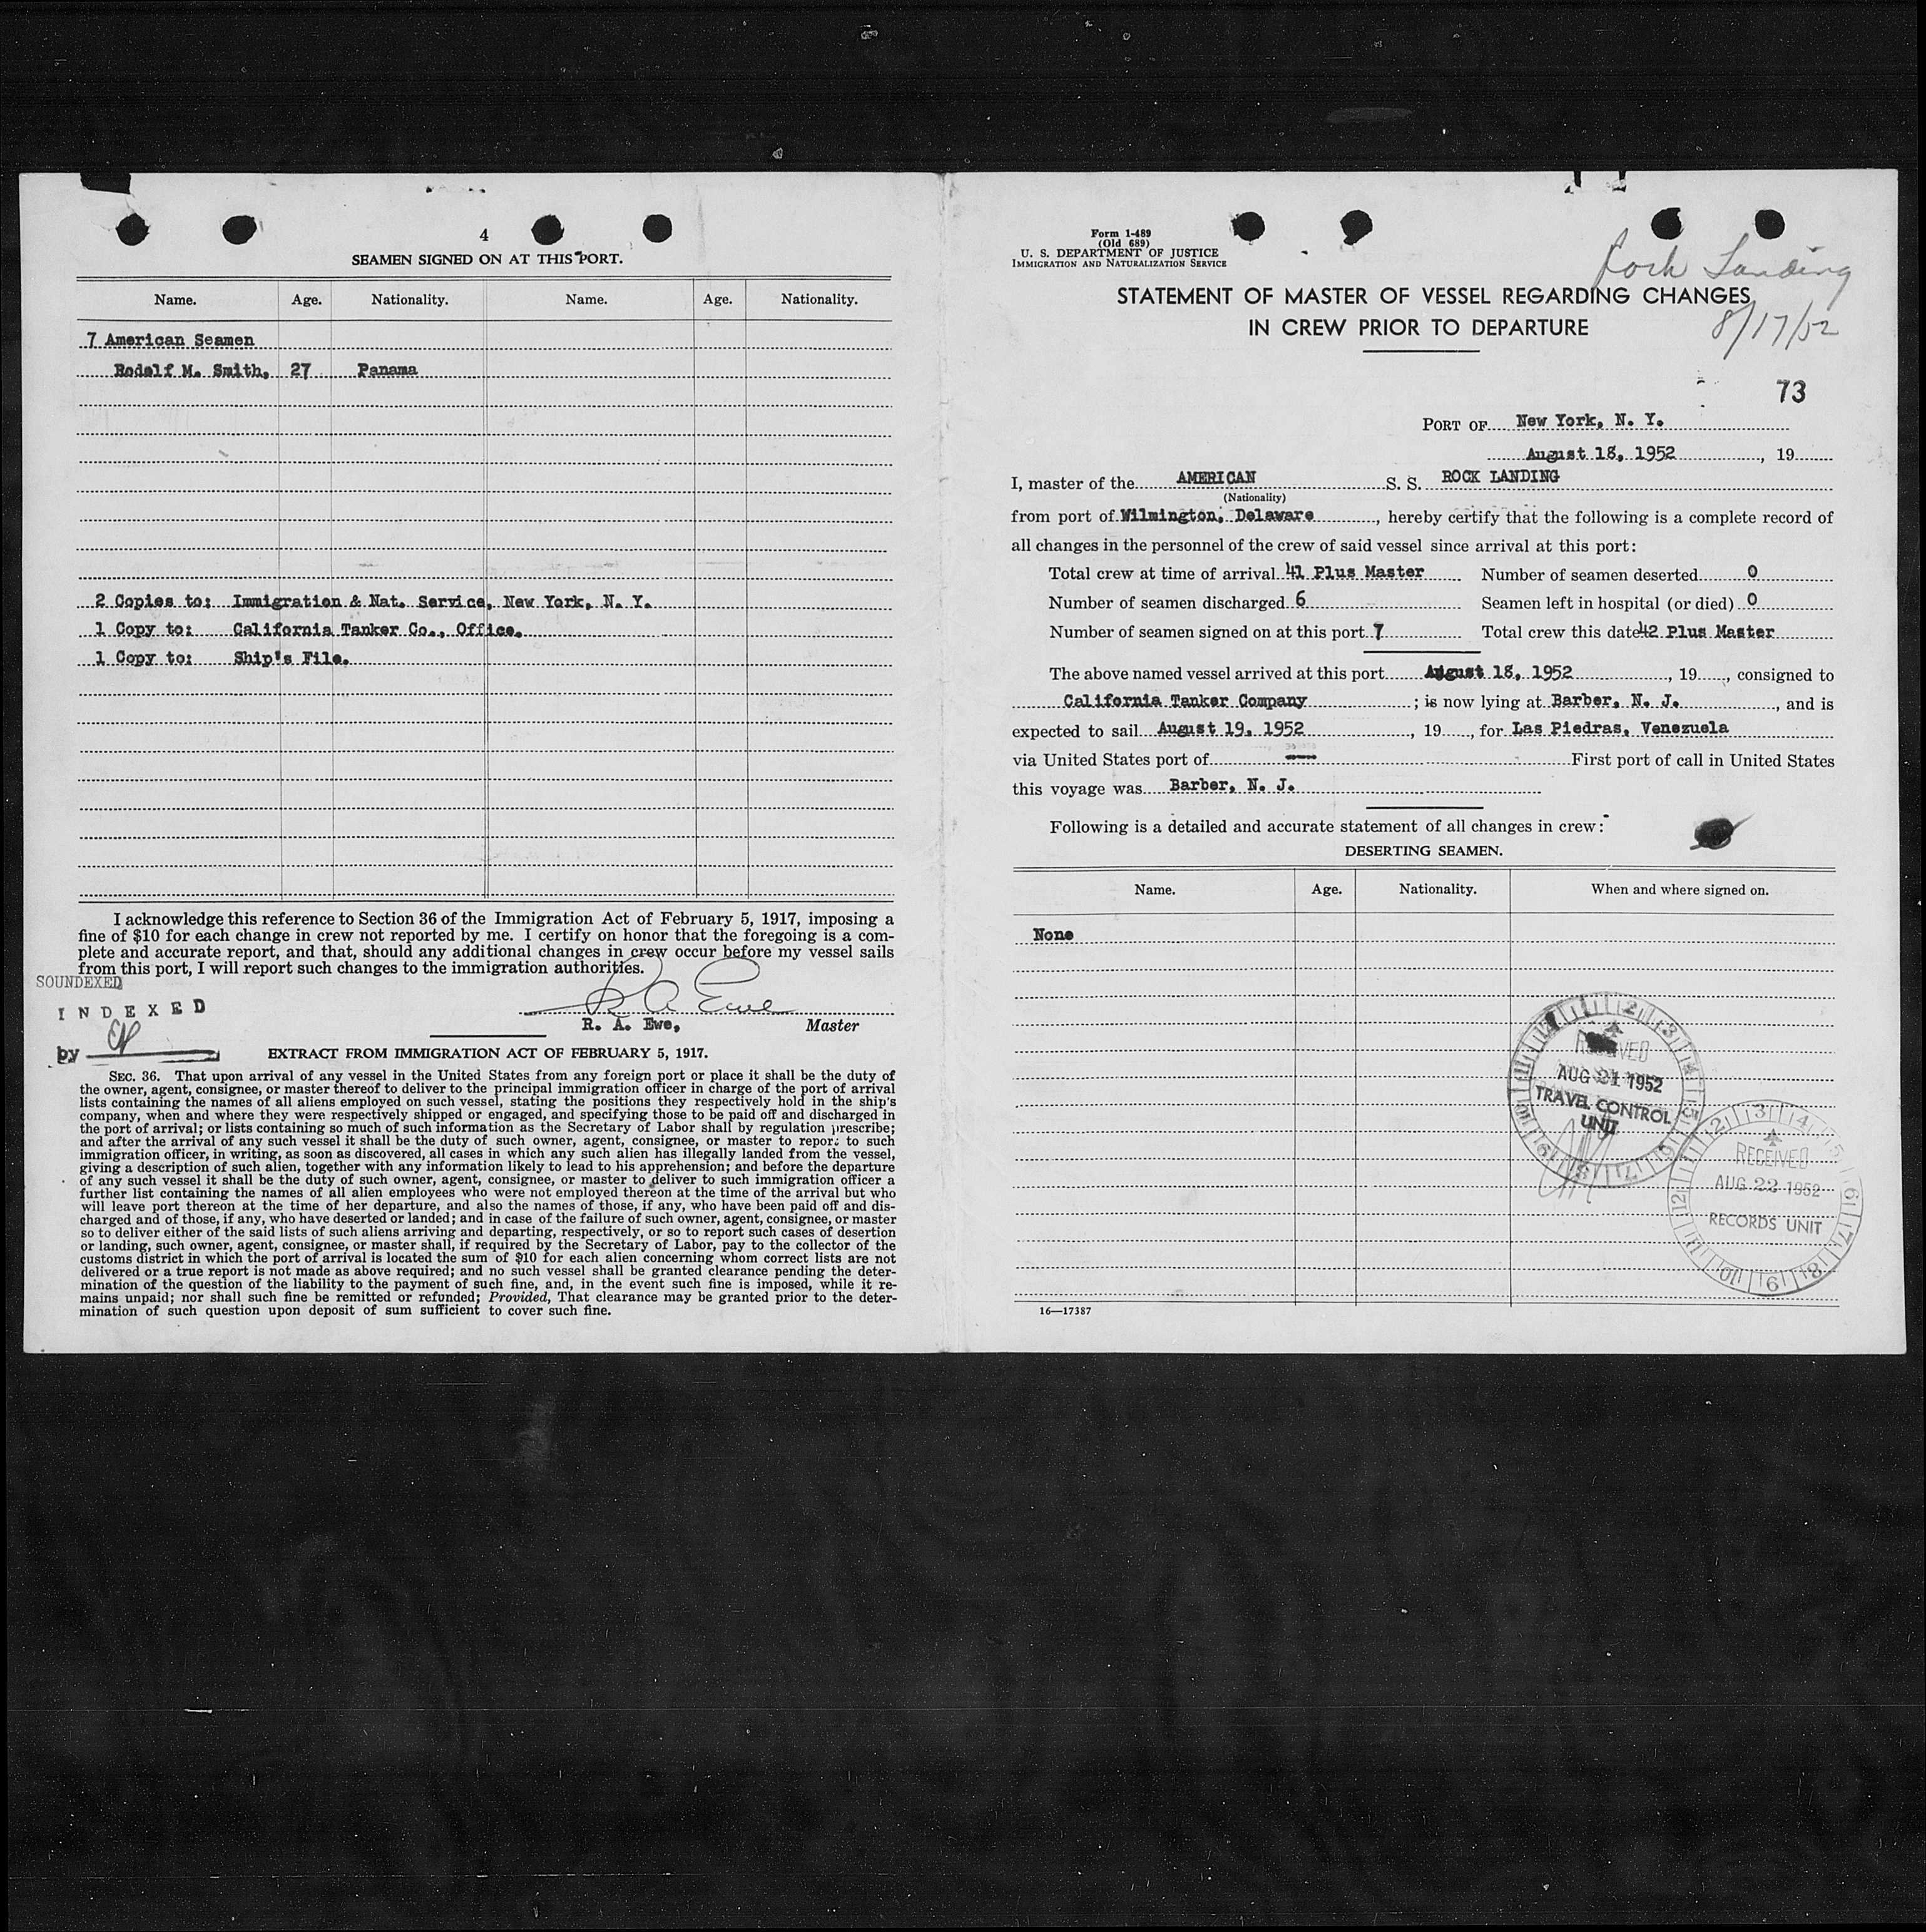 4
SEAMEN SIGNED ON AT THIS PORT.
Name. Age. Nationality. Name. Age. Nationality.
7 American Seamen
Rodolf M. Smith, 27 Panama
2 Copies to: Immigration & Nat. Service, New York, N. Y.
1 Copy to: California Tanker Co., Office.
1 Copy to: Ship's File.
I acknowledge this reference to Section 36 of the Immigration Act of February 5, 1917, imposing a
fine of $10 for each change in crew not reported by me. I certify on honor that the foregoing is a com-
plete and accurate report, and that, should any additional changes in crew occur before my vessel sails
from this port, I will report such changes to the immigration authorities.
SOUNDEXED
INDEXED
by
R A Ewe
R. A. Ewe, Master
EXTRACT FROM IMMIGRATION ACT OF FEBRUARY 5, 1917.
SEC. 36. That upon arrival of any vessel in the United States from any foreign port or place it shall be the duty of
the owner, agent, consignee, or master thereof to deliver to the principal immigration officer in charge of the port of arrival
lists containing the names of all aliens employed on such vessel, stating the positions they respectively hold in the ship's
company, when and where they were respectively shipped or engaged, and specifying those to be paid off and discharged in
the port of arrival; or lists containing so much of such information as the Secretary of Labor shall by regulation prescribe;
and after the arrival of any such vessel it shall be the duty of such owner, agent, consignee, or master to report to such
immigration officer, in writing, as soon as discovered, all cases in which any such alien has illegally landed from the vessel,
giving a description of such alien, together with any information likely to lead to his apprehension; and before the departure
of any such vessel it shall be the duty of such owner, agent, consignee, or master to deliver to such immigration officer a
further list containing the names of all alien employees who were not employed thereon at the time of the arrival but who
will leave port thereon at the time of her departure, and also the names of those, if any, who have been paid off and dis-
charged and of those, if any, who have deserted or landed; and in case of the failure of such owner, agent, consignee, or master
so to deliver either of the said lists of such aliens arriving and departing, respectively, or so to report such cases of desertion
or landing, such owner, agent, consignee, or master shall, if required by the Secretary of Labor, pay to the collector of the
customs district in which the port of arrival is located the sum of $10 for each alien concerning whom correct lists are not
delivered or a true report is not made as above required; and no such vessel shall be granted clearance pending the deter-
mination of the question of the liability to the payment of such fine, and, in the event such fine is imposed, while it re-
mains unpaid; nor shall such fine be remitted or refunded; Provided, That clearance may be granted prior to the deter-
mination of such question upon deposit of sum sufficient to cover such fine.
Form 1-489
(Old 689)
U. S. DEPARTMENT OF JUSTICE
IMMIGRATION AND NATURALIZATION SERVICE
Rock Landing
8/17/52
STATEMENT OF MASTER OF VESSEL REGARDING CHANGES
IN CREW PRIOR TO DEPARTURE
73
PORT OF New York, N. Y.
August 18, 1952, 19
I, master of the AMERICAN S. S. ROCK LANDING
(Nationality)
from port of Wilmington, Delaware, hereby certify that the following is a complete record of
all changes in the personnel of the crew of said vessel since arrival at this port:
Total crew at time of arrival 41 Plus Master Number of seamen deserted 0
Number of seamen discharged 6 Seamen left in hospital (or died) 0
Number of seamen signed on at this port 7 Total crew this date 42 Plus Master
The above named vessel arrived at this port August 18, 1952, 19, consigned to
California Tanker Company; is now lying at Barber, N. J., and is
expected to sail August 19, 1952, 19, for Las Piedras, Venezuela
via United States port of ---- First port of call in United States
this voyage was Barber, N. J.
Following is a detailed and accurate statement of all changes in crew:
DESERTING SEAMEN.
Name. Age. Nationality. When and where signed on.
None
RECEIVED
AUG 21 1952
TRAVEL CONTROL
UNIT
RECEIVED
AUG 22 1952
RECORDS UNIT
16—17387